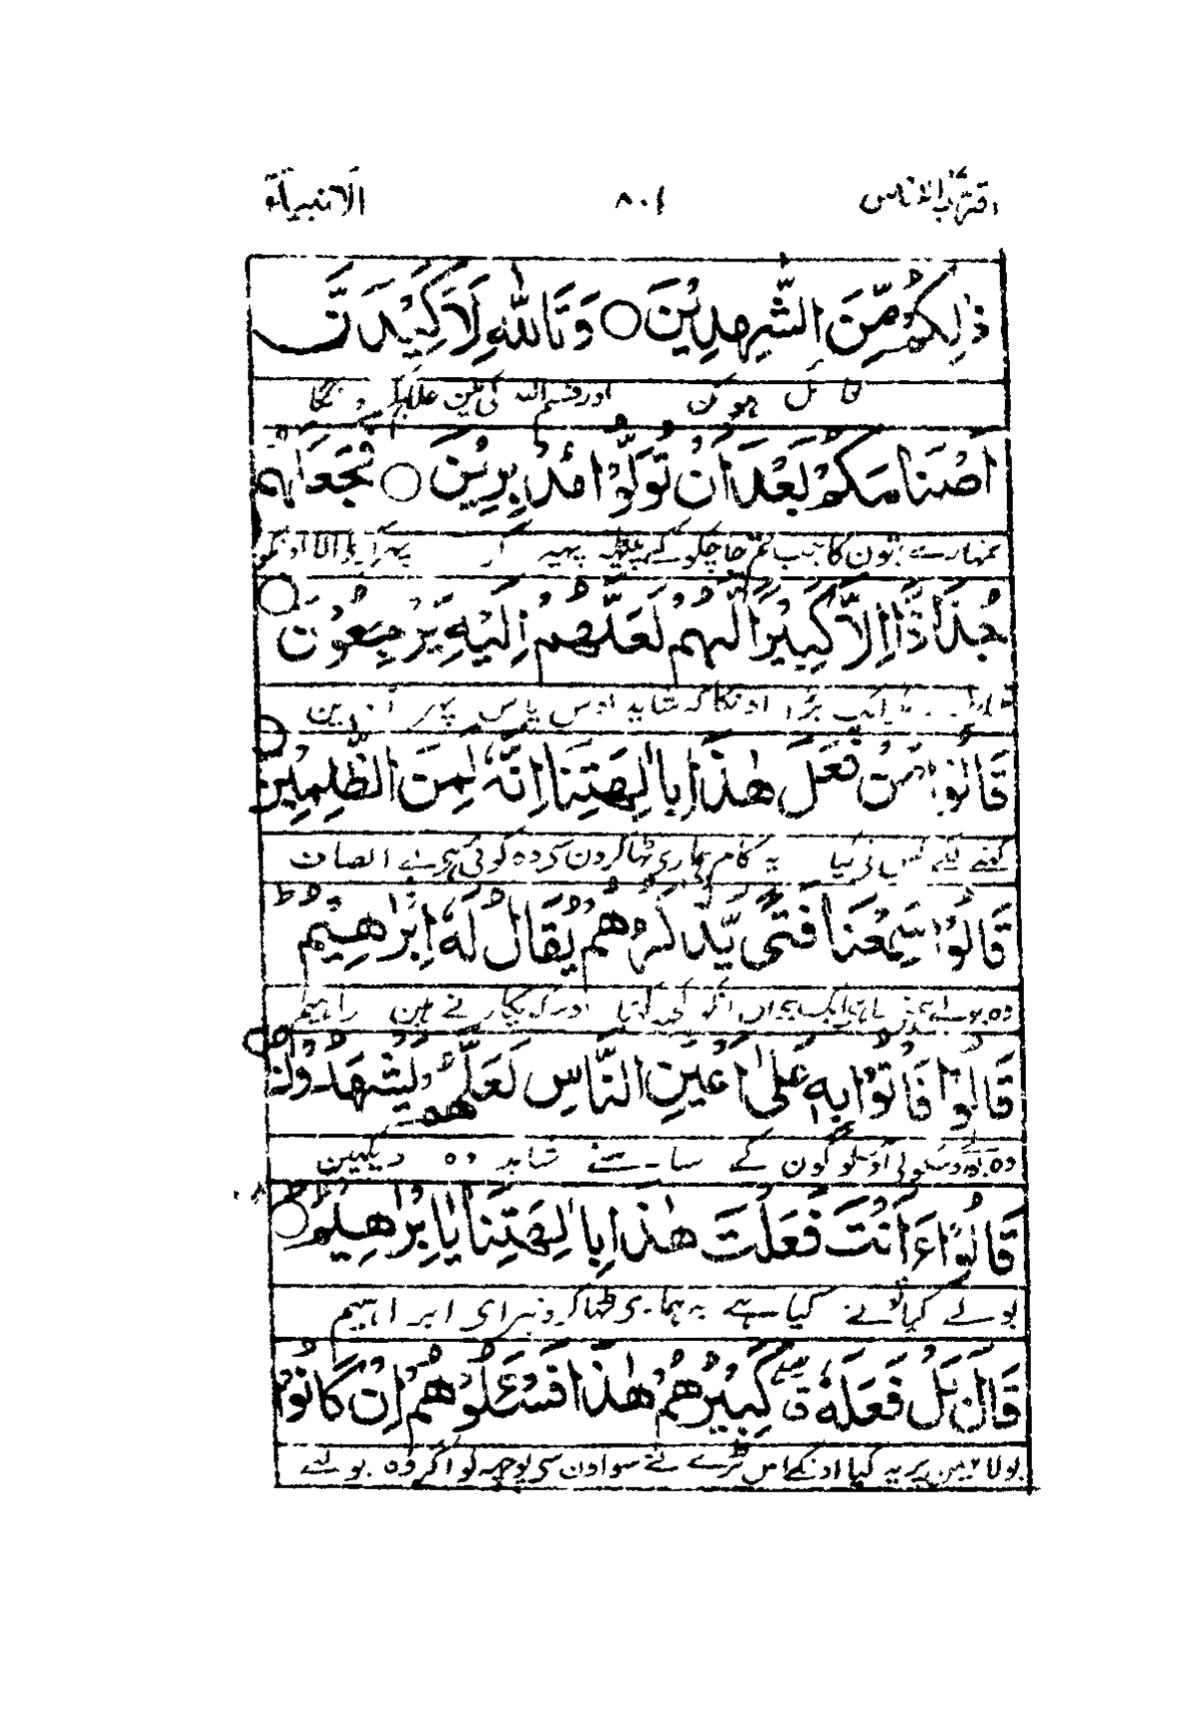 اقترب للناس ٨٠٤ الانبیآء
ذٰلِكُمْ مِّنَ الشّٰهِدِیْنَ ○ وَتَاللّٰهِ لَاَكِیْدَنَّ
قائل ہون اور قسم اللہ کی مین علاج کرونگا
اَصْنَامَكُمْ بَعْدَ اَنْ تُوَلُّوْا مُدْبِرِیْنَ ○ فَجَعَلَهُمْ
تمہارے بتون کا جب تم جا چکو گے پیٹھہ پہیر کر پہر کر ڈالا اونکو
جُذَاذًا اِلَّا كَبِیْرًا لَّهُمْ لَعَلَّهُمْ اِلَیْهِ یَرْجِعُوْنَ ○
ایک بڑا اونکا کہ شاید اوس پاس پہر آوین
قَالُوْا مَنْ فَعَلَ هٰذَا بِاٰلِهَتِنَا اِنَّهٗ لَمِنَ الظّٰلِمِیْنَ ○
کہنے لگے کس نے کیا یہ کام ہماری ٹہاکرون سے وہ کوئی بے انصاف
قَالُوْا سَمِعْنَا فَتًی یَّذْكُرُهُمْ یُقَالُ لَهٗ اِبْرٰهِیْمُ ط
وہ بولے ہمنے سنا ہی ایک جوان انکو کچھہ کہتا اوسکو پکارتے ہین ابراہیم
قَالُوْا فَاْتُوْا بِهٖ عَلٰی اَعْیُنِ النَّاسِ لَعَلَّهُمْ یَشْهَدُوْنَ ○
وہ بولے اوسکو لے آو لوگون کے سامنے شاید وہ دیکہین
قَالُوْا ءَاَنْتَ فَعَلْتَ هٰذَا بِاٰلِهَتِنَا یٰاِبْرٰهِیْمُ ط ○
بولے کیا تونے کیا ہے یہ ہماری ٹہاکرونپر ای ابراہیم
قَالَ بَلْ فَعَلَهٗ ق كَبِیْرُهُمْ هٰذَا فَسْـَٔلُوْهُمْ اِنْ كَانُوْا
بولا نہین پر یہ کیا اونکے اس بڑے نے سو اون سی پوچہہ لو اگر وہ بولتے